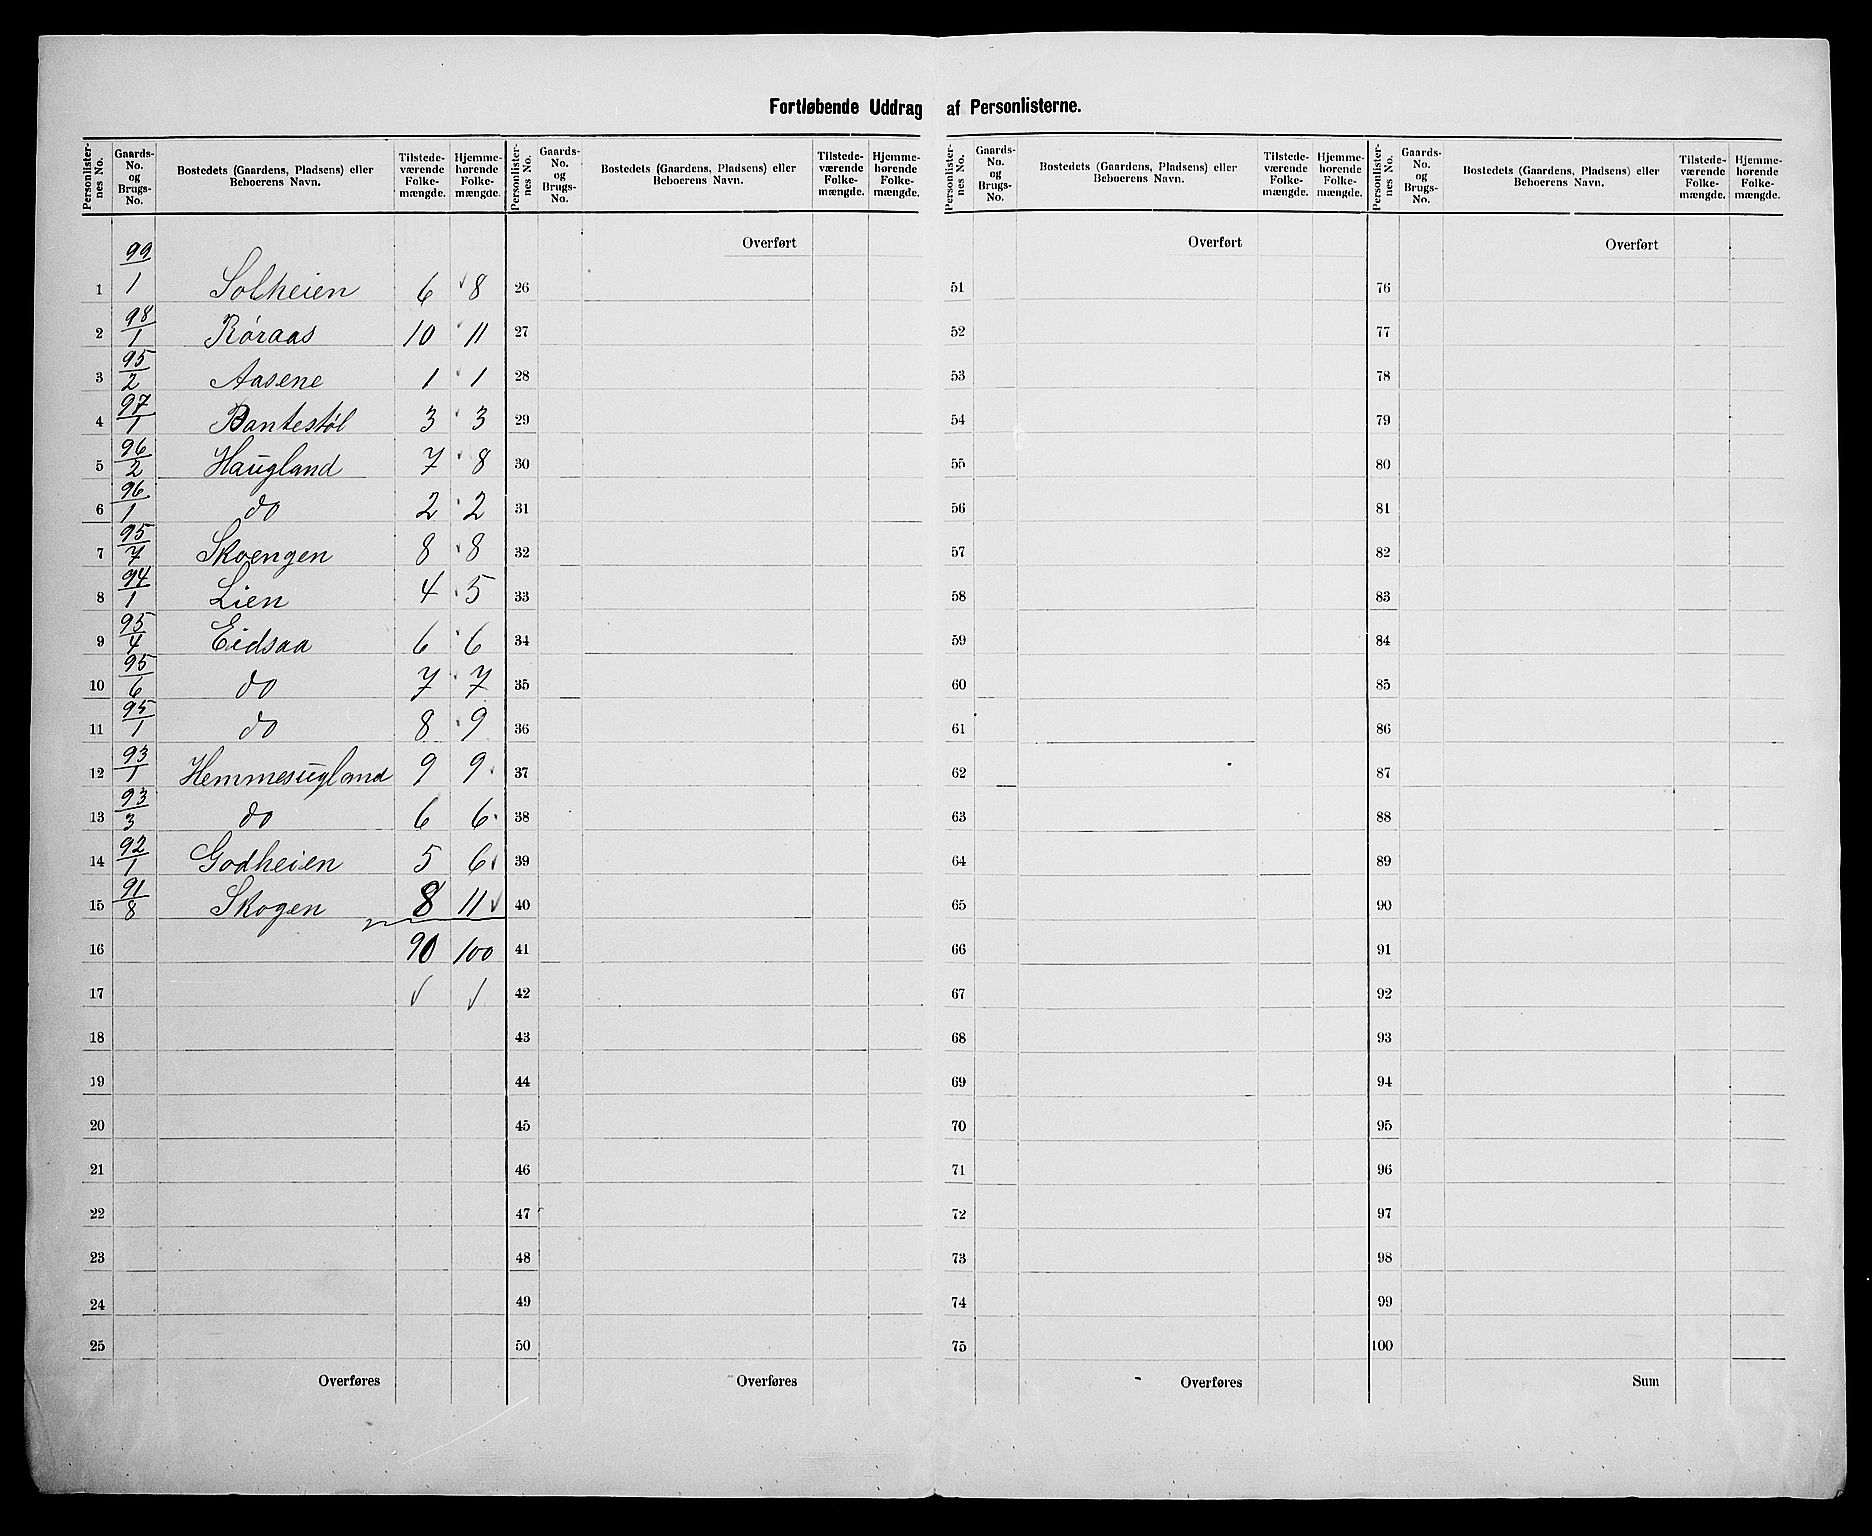 Fortløbende Uddrag af Personlisterne.
Personlister-nes No. | Gaards-No. og Brugs-No. | Bostedets (Gaardens, Pladsens) eller Beboerens Navn. | Tilstede-værende Folke-mængde. | Hjemme-hørende Folke-mængde.
1 99/1 Solheien 6 8
2 98/1 Røraas 10 11
3 95/2 Aasene 1 1
4 97/1 Bantestøl 3 3
5 96/2 Haugland 7 8
6 96/1 do 2 2
7 95/7 Skoengen 8 8
8 94/1 Lien 4 5
9 95/4 Eidsaa 6 6
10 95/6 do 7 7
11 95/1 do 8 9
12 93/1 Hemmesugland 9 9
13 93/3 do 6 6
14 92/1 Godheien 5 6
15 91/8 Skogen 8 11
16 90 100
17 ✓ ✓
18
19
20
21
22
23
24
25
Overføres
Personlister-nes No. | Gaards-No. og Brugs-No. | Bostedets (Gaardens, Pladsens) eller Beboerens Navn. | Tilstede-værende Folke-mængde. | Hjemme-hørende Folke-mængde.
Overført
26
27
28
29
30
31
32
33
34
35
36
37
38
39
40
41
42
43
44
45
46
47
48
49
50
Overføres
Personlister-nes No. | Gaards-No. og Brugs-No. | Bostedets (Gaardens, Pladsens) eller Beboerens Navn. | Tilstede-værende Folke-mængde. | Hjemme-hørende Folke-mængde.
Overført
51
52
53
54
55
56
57
58
59
60
61
62
63
64
65
66
67
68
69
70
71
72
73
74
75
Overføres
Personlister-nes No. | Gaards-No. og Brugs-No. | Bostedets (Gaardens, Pladsens) eller Beboerens Navn. | Tilstede-værende Folke-mængde. | Hjemme-hørende Folke-mængde.
Overført
76
77
78
79
80
81
82
83
84
85
86
87
88
89
90
91
92
93
94
95
96
97
98
99
100
Sum